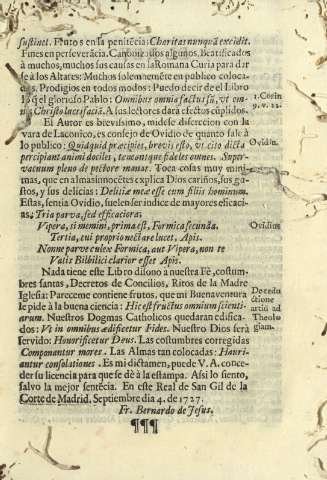 sustinet. Frutos en la penitēcia: Charitas nunquā excidit.
Fines en perseverācia. Canoniçados algunos, Beatificados
à muchos, muchos sus causas en la Romana Curia para dar
se à los Altares: Muchos solemnemēte en publico coloca-
dos. Prodigios en todos modos: Puedo decir de el Libro
lo q̄ el glorioso Pablo: Omnibus omnia factus sū, ut om-
nes Christo lucrifaciā. A los Lectores darà efectos cūplidos.
El Autor es brevissimo, mide se discrecion con la
vara de Laconico, es consejo de Ovidio de quanto sale à
lo publico: Quidquid præcipies, brevis esto, ut citò dicta
percipiant animi dociles, teneantque fideles omnes. Super-
vacuum pleno de pectore manat. Toca cosas muy mini-
mas, que en almas inocētes explica Dios cariños, sus ga-
stos, y sus delicias: Delitiæ meæ esse cum filiis hominum.
Estas, sentia Ovidio, suelen ser indice de mayores eficaci-
as, Tria parva, sed efficaciora;
Vipera, si memini, prima est, Formica secunda.
Tertia, cui proprio nectare lucet, Apis.
Nonne parvæ culex Formica, aut Vipera, non te
Valis Bibilici clarior esset Apis.
Nada tiene este Libro disono à nuestra Fè, costum-
bres santas, Decretos de Concilios, Ritos de la Madre
Iglesia: Pareceme contiene frutos, que mi Buenaventura
le pide à la buena ciencia: Hic est fructus omnium scienti-
arum. Nuestros Dogmas Catholicos quedaràn edifica-
dos: Ut in omnibus ædificetur Fides. Nuestro Dios serà
servido: Honorificetur Deus. Las costumbres corregidas
Componantur mores. Las Almas tan colocadas: Hauri-
antur consolationes. Es mi dictamen, puede V. A. conce-
der su licencia para que se dè à la estampa. Assi lo siento,
salvo la mejor sentēcia. En este Real de San Gil de la
Corte de Madrid. Septiembre dia 4. de 1727.
Fr. Bernardo de Jesus.
¶¶¶
1. Corin
9. v. 22.
Ovidius.
Ovidius
De redu
ctione
artiū ad
Theolo
giam.